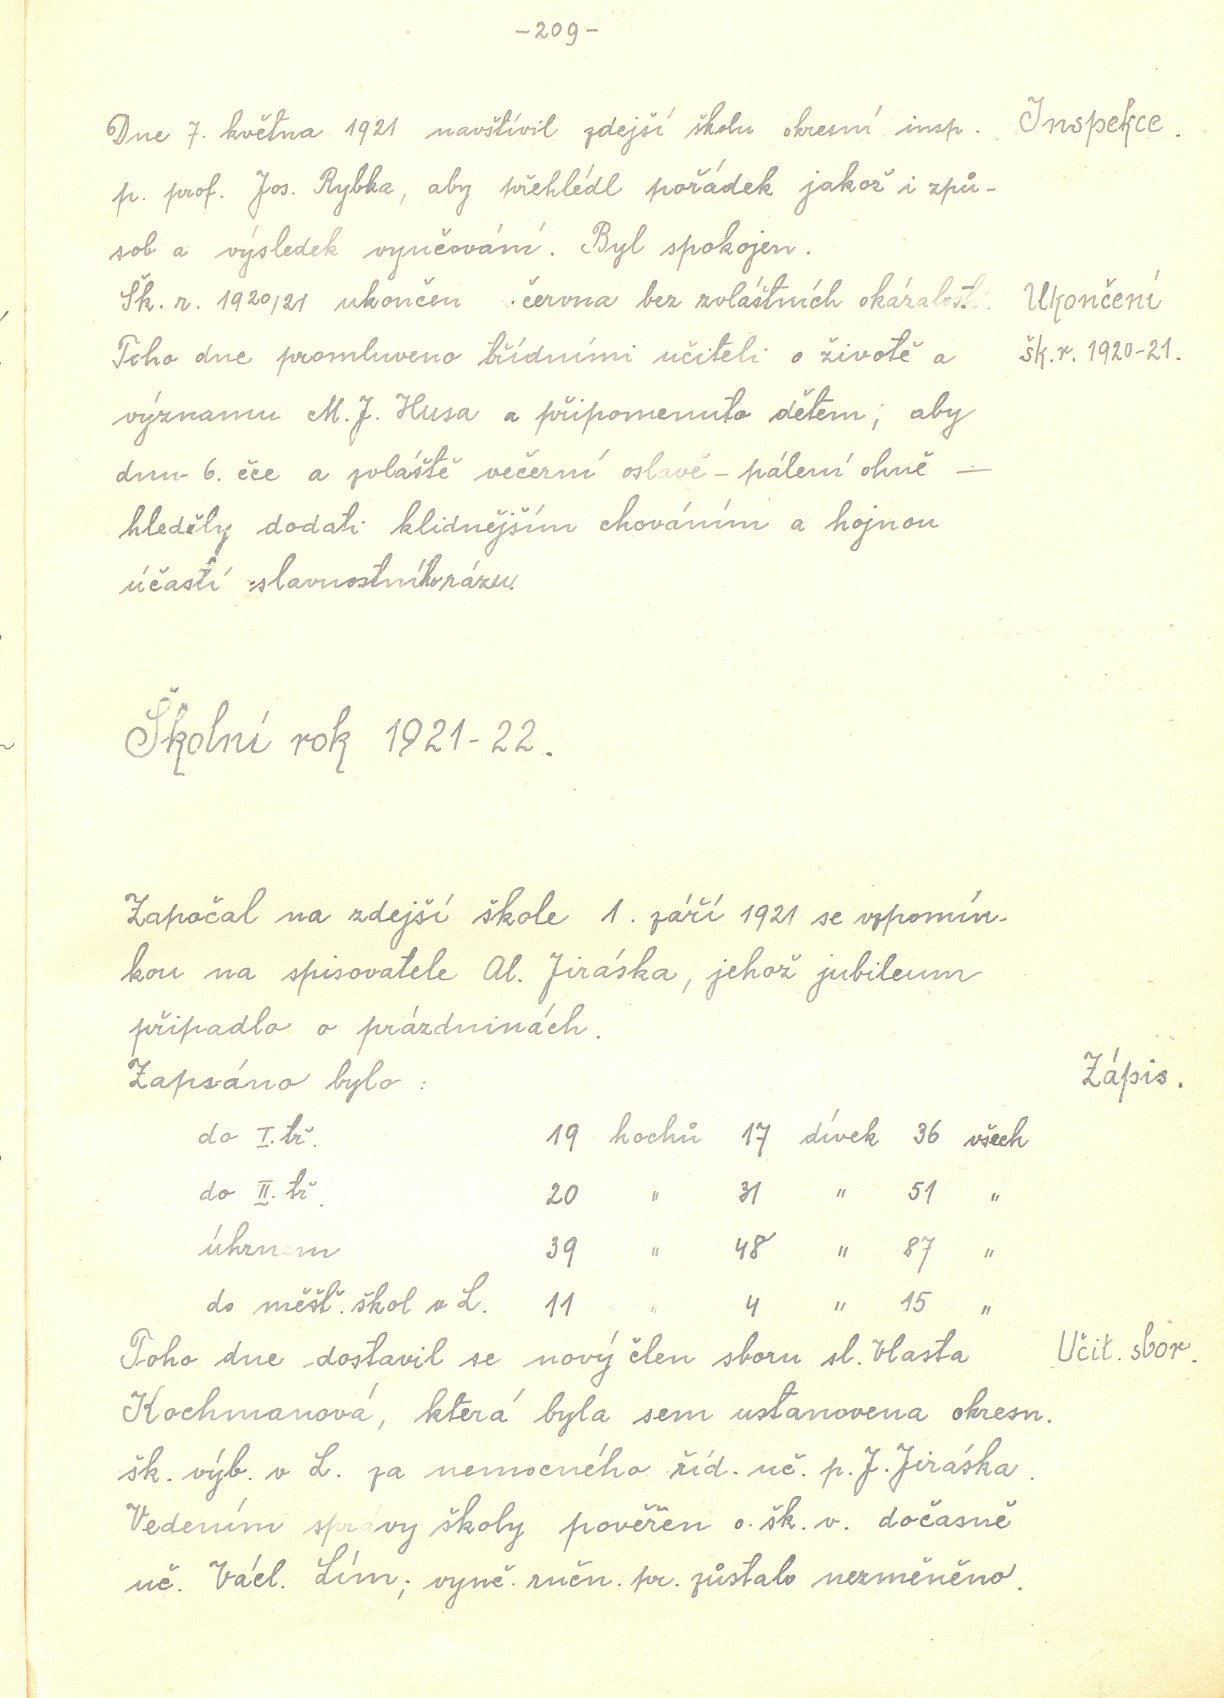 -209-
Dne 7. května 1921 navštívil zdejší školu okresní insp. Inspekce.
p. prof. Jos. Rybka, aby přehlédl pořádek jakož i způ-
sob a výsledek vyučování. Byl spokojen.
Šk. r. 1920/21 ukončen června bez zvláštních okázalostí. Ukončení
Toho dne promluveno třídními učiteli o životě a šk. r. 1920-21.
významu M. J. Husa a připomenuto dětem, aby
dnu 6. čce a zvláště večerní oslavě - pálení ohně —
hleděly dodati klidnějším chováním a hojnou
účastí slavnostního rázu.
Školní rok 1921-22.
Započal na zdejší škole 1. září 1921 se vzpomín-
kou na spisovatele Al. Jiráska, jehož jubileum
připadlo o prázdninách.
Zapsáno bylo: Zápis.
do I. tř. 19 hochů 17 dívek 36 všech
do II. tř. 20 " 31 " 51 "
úhrnem 39 " 48 " 87 "
do měšť. škol v L. 11 " 4 " 15 "
Toho dne dostavil se nový člen sboru sl. Vlasta Učit. sbor.
Kochmanová, která byla sem ustanovena okresn.
šk. výb. v L. za nemocného říd. uč. p. J. Jiráska.
Vedením správy školy pověřen o. šk. v. dočasně
uč. Václ. Lím; vyuč. ručn. pr. zůstalo nezměněno.